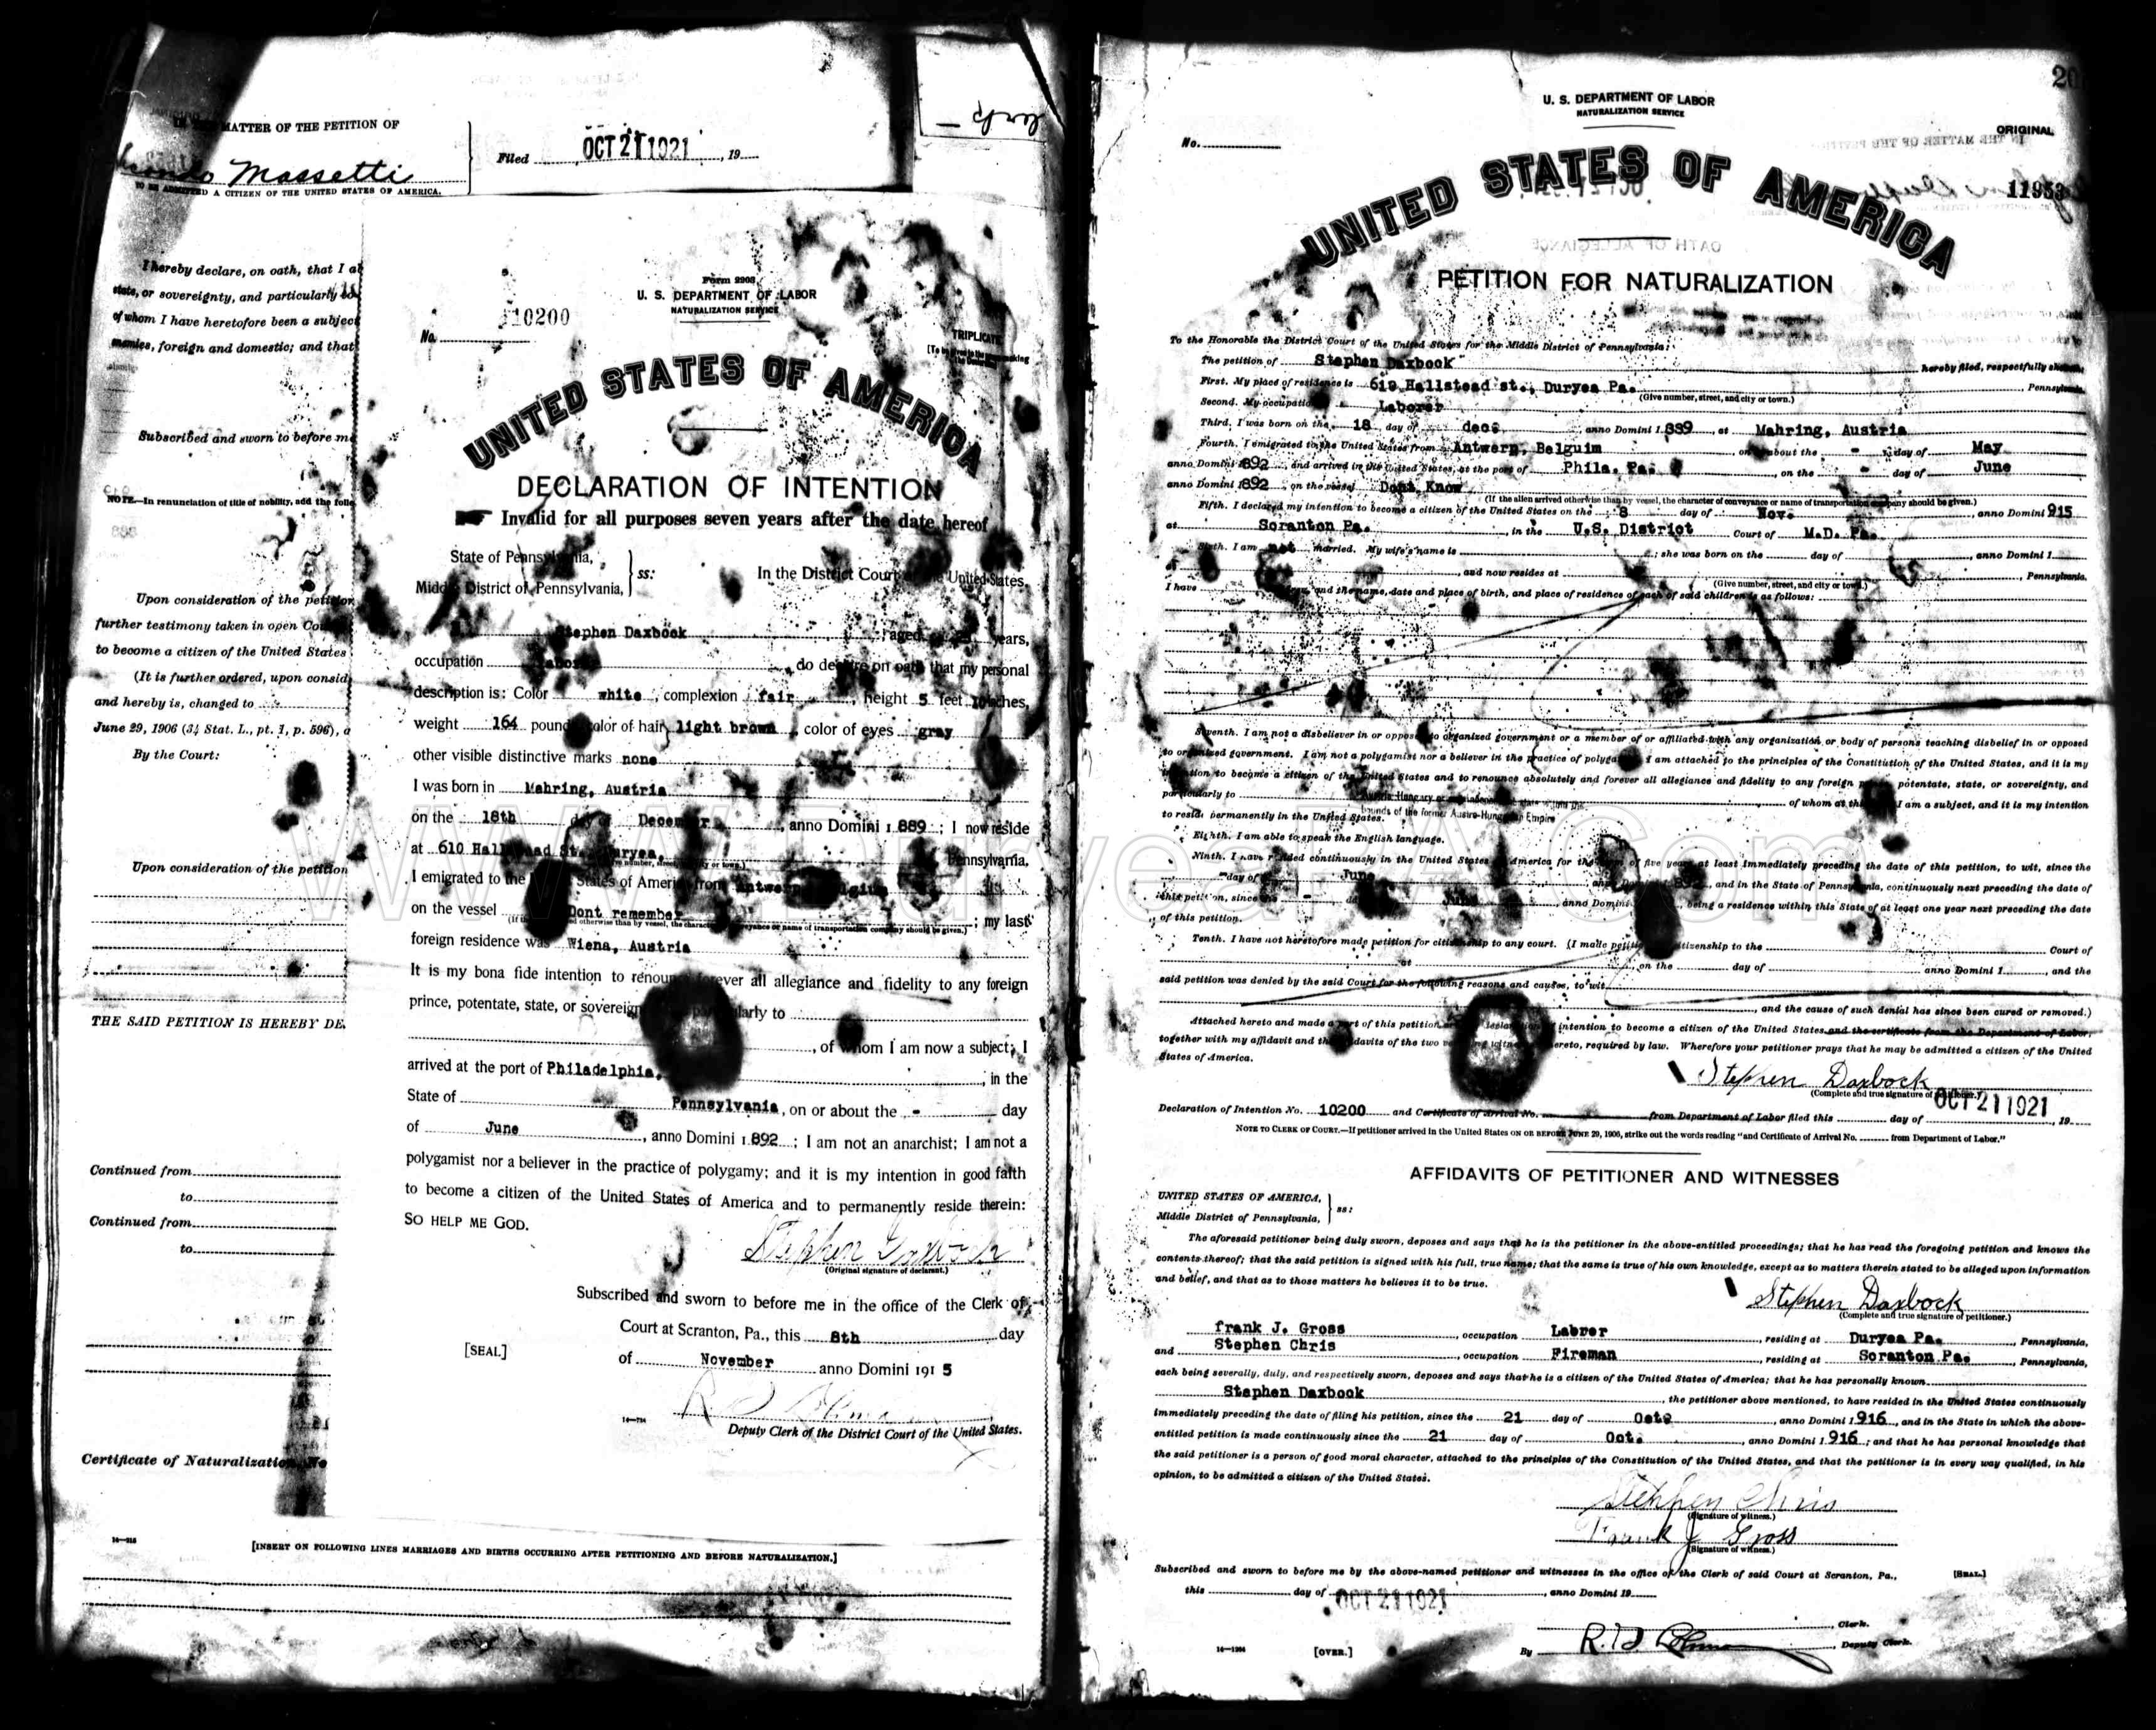 MATTER OF THE PETITION OF
Massetti
TO BE ADMITTED A CITIZEN OF THE UNITED STATES OF AMERICA.
Filed OCT 21 1921, 19
I hereby declare, on oath, that I
state, or sovereignty, and particularly
of whom I have heretofore been a subject
enemies, foreign and domestic; and that
Subscribed and sworn to before me
NOTE.—In renunciation of title of nobility, add the
Upon consideration of the petition
further testimony taken in open
to become a citizen of the United States
(It is further ordered, upon consid
and hereby is, changed to
June 29, 1906 (34 Stat. L., pt. 1, p. 596), a
By the Court:
Upon consideration of the petition
THE SAID PETITION IS HEREBY DE
Continued from
to
Continued from
to
Certificate of Naturalization, No
[INSERT ON FOLLOWING LINES MARRIAGES AND BIRTHS OCCURRING AFTER PETITIONING AND BEFORE NATURALIZATION.]
Form 2203
U. S. DEPARTMENT OF LABOR
NATURALIZATION SERVICE
No. 10200
TRIPLICATE
UNITED STATES OF AMERICA
DECLARATION OF INTENTION
Invalid for all purposes seven years after the date hereof
State of Pennsylvania,
Middle District of Pennsylvania, ss: In the District Court of the United States.
Stephen Daxbock, aged years,
occupation Laborer, do declare on oath that my personal
description is: Color white, complexion fair, height 5 feet 10 inches,
weight 164 pounds, color of hair light brown, color of eyes gray
other visible distinctive marks none
I was born in Mahring, Austria
on the 18th day of December, anno Domini 1 889; I now reside
at 610 Hallstead St., Duryea, Pennsylvania.
I emigrated to the United States of America from Antwerp, Belgium
on the vessel Dont remember; my last
foreign residence was Wiena, Austria
It is my bona fide intention to renounce forever all allegiance and fidelity to any foreign
prince, potentate, state, or sovereignty, and particularly to
, of whom I am now a subject; I
arrived at the port of Philadelphia, in the
State of Pennsylvania, on or about the - day
of June, anno Domini 1 892; I am not an anarchist; I am not a
polygamist nor a believer in the practice of polygamy; and it is my intention in good faith
to become a citizen of the United States of America and to permanently reside therein:
SO HELP ME GOD.
Stephen Daxbock
(Original signature of declarant.)
Subscribed and sworn to before me in the office of the Clerk of
Court at Scranton, Pa., this 8th day
[SEAL] of November anno Domini 191 5
Deputy Clerk of the District Court of the United States.
20
U. S. DEPARTMENT OF LABOR
NATURALIZATION SERVICE
No.
ORIGINAL
11953
UNITED STATES OF AMERICA
PETITION FOR NATURALIZATION
To the Honorable the District Court of the United States for the Middle District of Pennsylvania:
The petition of Stephen Daxbock hereby filed, respectfully
First. My place of residence is 619 Hallstead st., Duryea Pa. Pennsylvania.
(Give number, street, and city or town.)
Second. My occupation Laborer
Third. I was born on the 18 day of dec. anno Domini 1 889, at Mahring, Austria
Fourth. I emigrated to the United States from Antwerp, Belguim on or about the - day of May
anno Domini 1892, and arrived in the United States, at the port of Phila. Pa., on the - day of June
anno Domini 1892, on the vessel Dont Know
(If the alien arrived otherwise than by vessel, the character of conveyance or name of transportation company should be given.)
Fifth. I declared my intention to become a citizen of the United States on the 8 day of Nov. anno Domini 915
at Scranton Pa., in the U.S. District Court of M.D. Pa.
Sixth. I am not married. My wife's name is ; she was born on the day of , anno Domini 1
and now resides at Pennsylvania.
(Give number, street, and city or town.)
I have and the name, date and place of birth, and place of residence of each of said children is as follows:
Seventh. I am not a disbeliever in or opposed to organized government or a member of or affiliated with any organization or body of persons teaching disbelief in or opposed
to organized government. I am not a polygamist nor a believer in the practice of polygamy. I am attached to the principles of the Constitution of the United States, and it is my
intention to become a citizen of the United States and to renounce absolutely and forever all allegiance and fidelity to any foreign potentate, state, or sovereignty, and
particularly to of whom at this I am a subject, and it is my intention
to reside permanently in the United States. bounds of the former Austro-Hungarian Empire
Eighth. I am able to speak the English language.
Ninth. I have resided continuously in the United States of America for the term of five years at least immediately preceding the date of this petition, to wit, since the
- day of June , and in the State of Pennsylvania, continuously next preceding the date of
this petition, since the June , anno Domini , being a residence within this State of at least one year next preceding the date
of this petition.
Tenth. I have not heretofore made petition for citizenship to any court. (I made petition citizenship to the Court of
at , on the day of anno Domini 1 , and the
said petition was denied by the said Court for the following reasons and causes, to wit
, and the cause of such denial has since been cured or removed.)
Attached hereto and made a part of this petition declaration intention to become a citizen of the United States and the certificate from the Department of Labor,
together with my affidavit and the affidavits of the two hereto, required by law. Wherefore your petitioner prays that he may be admitted a citizen of the United
States of America.
Stephen Daxbock
(Complete and true signature of petitioner.)
Declaration of Intention No. 10200 and Certificate of Arrival No. from Department of Labor filed this day of OCT 21 1921, 19
NOTE TO CLERK OF COURT.—If petitioner arrived in the United States ON OR BEFORE JUNE 29, 1906, strike out the words reading "and Certificate of Arrival No. from Department of Labor."
AFFIDAVITS OF PETITIONER AND WITNESSES
UNITED STATES OF AMERICA,
Middle District of Pennsylvania, ss:
The aforesaid petitioner being duly sworn, deposes and says that he is the petitioner in the above-entitled proceedings; that he has read the foregoing petition and knows the
contents thereof; that the said petition is signed with his full, true name; that the same is true of his own knowledge, except as to matters therein stated to be alleged upon information
and belief, and that as to those matters he believes it to be true.
Stephen Daxbock
(Complete and true signature of petitioner.)
frank J. Gross, occupation Labrer, residing at Duryea Pa. Pennsylvania,
and Stephen Chris, occupation Fireman, residing at Scranton Pa., Pennsylvania,
each being severally, duly, and respectively sworn, deposes and says that he is a citizen of the United States of America; that he has personally known
Stephen Daxbock, the petitioner above mentioned, to have resided in the United States continuously
immediately preceding the date of filing his petition, since the 21 day of Oct. , anno Domini 1 916, and in the State in which the above-
entitled petition is made continuously since the 21 day of Oct. , anno Domini 1 916; and that he has personal knowledge that
the said petitioner is a person of good moral character, attached to the principles of the Constitution of the United States, and that the petitioner is in every way qualified, in his
opinion, to be admitted a citizen of the United States.
Stehpen Chris
(Signature of witness.)
Frank J Gross
(Signature of witness.)
Subscribed and sworn to before me by the above-named petitioner and witnesses in the office of the Clerk of said Court at Scranton, Pa., [SEAL.]
this day of OCT 21 1921, anno Domini 19
, Clerk.
[OVER.] By , Deputy Clerk.